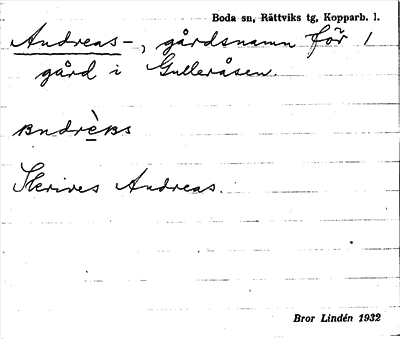 Boda sn, Rättviks tg, Kopparb. l.
Andreas-, gårdsnamn för 1
gård i Gulleråsen.
andrèas
Skrives Andreas.
Bror Lindén 1932